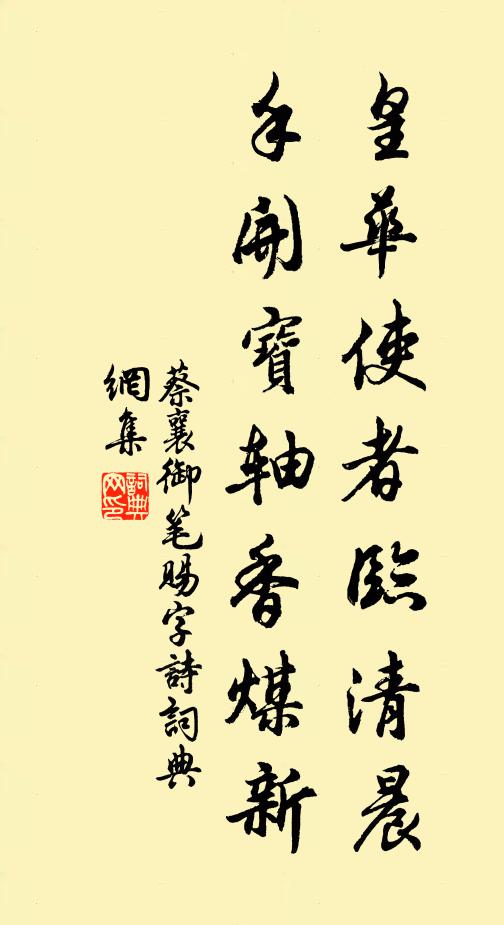 皇華使者臨清晨
手開寶軸香煤新
蔡襄御笔賜字詩詞典
網集
詞典網印